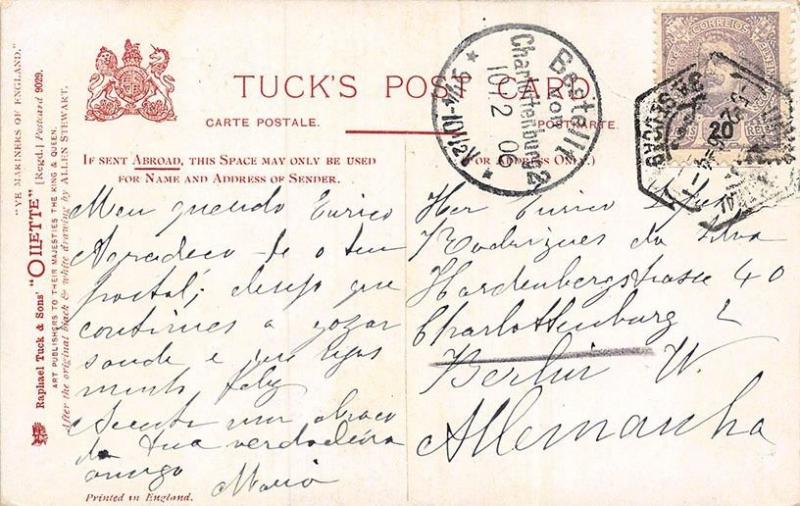 "YE MARINERS OF ENGLAND."
Raphael Tuck & Sons' "OILETTE" [Regd.] Postcard 9029.
ART PUBLISHERS TO THEIR MAJESTIES THE KING & QUEEN.
After the original black & white drawing by ALLEN STEWART.
TUCK'S POST CARD
CARTE POSTALE. POSTKARTE.
IF SENT ABROAD, THIS SPACE MAY ONLY BE USED
FOR NAME AND ADDRESS OF SENDER.
(FOR ADDRESS ONLY.)
Bestellt
von
Charlottenburg 2
10/12 05
CORREIOS
20
Meu querido Enrico
Agradeço-te o teu
postal; desejo que
continues a gozar
saude e que sejas
muito feliz
Aceita um abraço
da tua verdadeira
amiga
Maria
Her Enrico
Rodrigues da Silva
Hardenbergstrasse 40
Charlottenburg 2
Berlin W.
Allemanha
Printed in England.